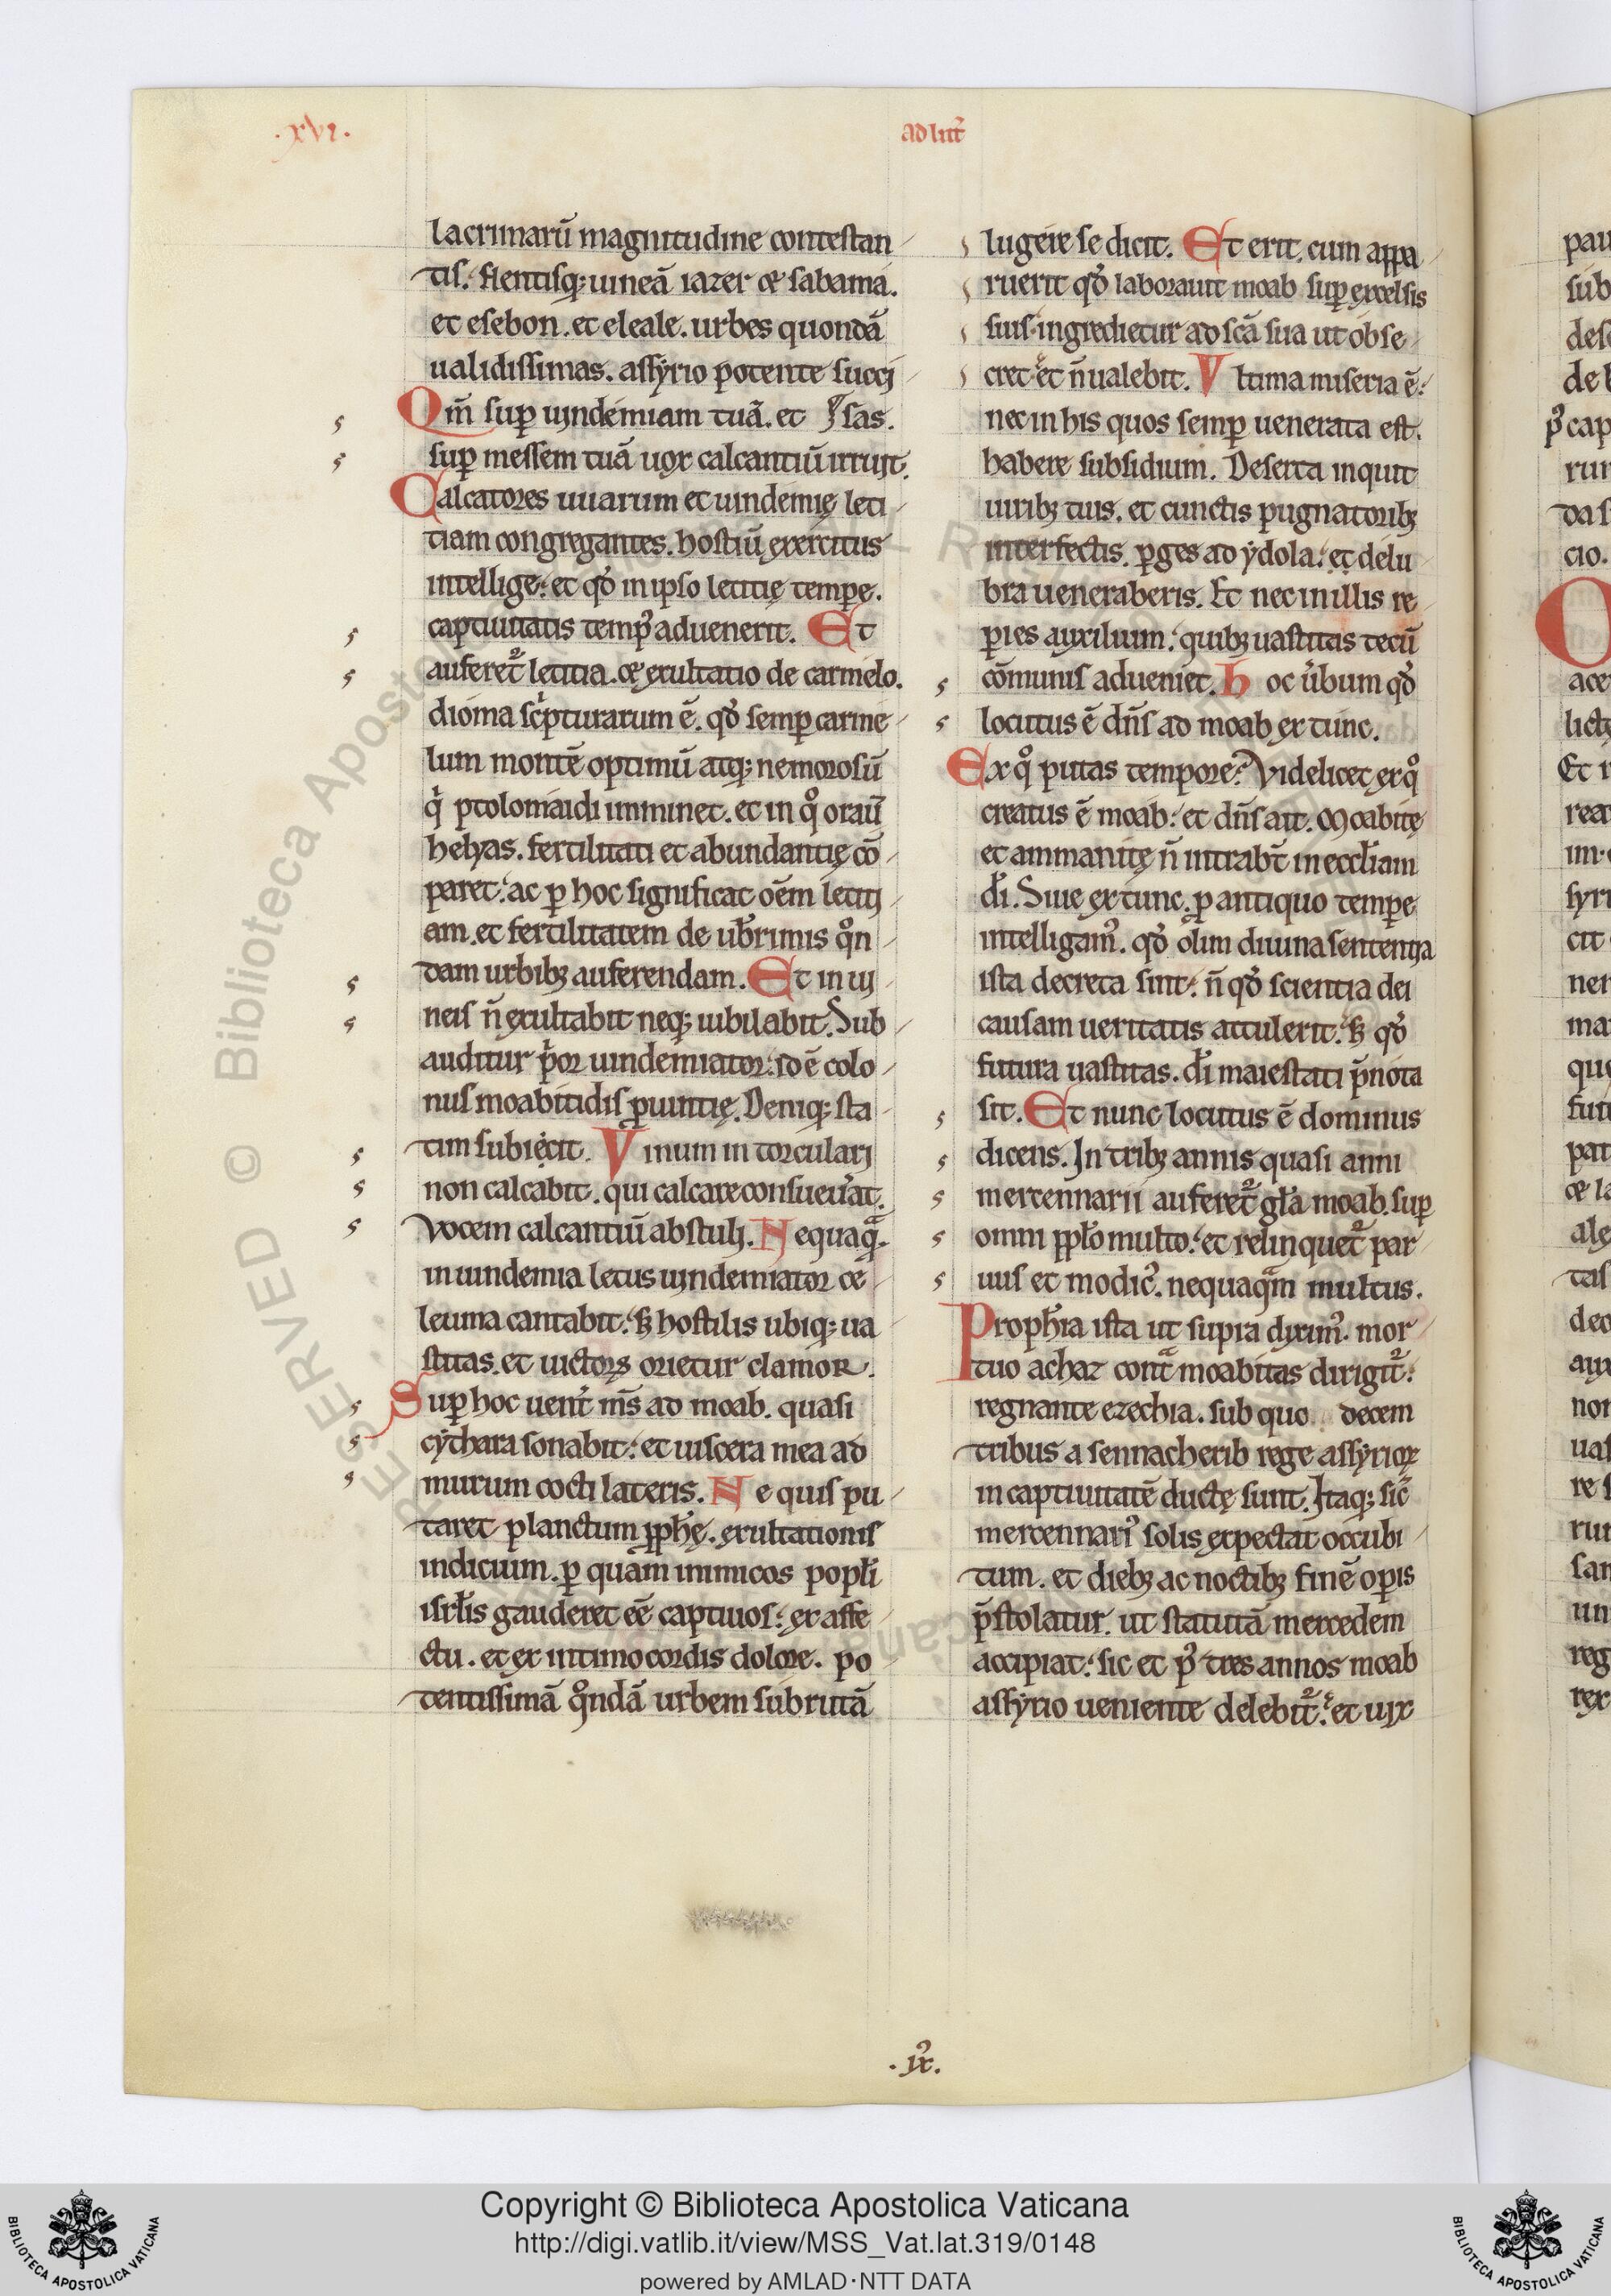 .xvi.
ad litt̃
lacrimarū magnitudine contestan
tis. flentisq; uineā iazer et sabama.
et esebon. et eleale. urbes quondā
ualidissimas. assyrio potente succi
Qm̄ sup uindemiam tuā. et
sup messem tuā uox calcantiū irruit.
Calcatores uuarum et uindemię leti
tiam congregantes. hostiū exercitus
intellige. et qđ in ipso letitię tempe.
captiuitatis temp᾽ aduenerit. Et
auferet᷑ letitia. et exultatio de carmelo.
dioma sc̓pturarum ē. qđ semp carme
lum montē optimū atq; nemorosū
q̓ ptolomaidi imminet. et in q° orau̅
helyas. fertilitati et abundantię cō
paret. ac p hoc significat oēm letiti
am. et fertilitatem de ub̓rimis q°n
dam urbib; auferendam. Et in ui
neis ñ exultabit neq; iubilabit. Sub
auditur p̓or uindemiator. id ē colo
nus moabitidis puintię. Deniq; sta
tim subięcit. Vinum in torculari
non calcabit. qui calcare consueu̓at.
Vocem calcantiū abstuli. Nequaq̃.
in uindemia letus uindemiator ce
leuma cantabit. s; hostilis ubiq; ua
stitas. et uictorꝫ orietur clamor.
Sup hoc uent̓ m̄s ad moab. quasi
cythara sonabit. et uiscera mea ad
murum cocti lateris. Ne quis pu
taret planctum pph̄ę. exultationis
indicium. p quam inimicos popl̓i
isrl̓is gauderet eē captiuos. ex affe
ctu. et ex intimo cordis dolore. po
tentissimā q°ndā urbem subrutā
lugere se dicit. Et erit. cum appa
ruerit qđ laborauit moab sup excelsis
suis. ingredietur ad sc̄a sua ut obse
cret. et ñ ualebit. Vltima miseria ē.
nec in his quos semp uenerata est.
habere subsidium. Deserta inquit
uirib; tuis. et cunctis pugnatorib;
interfectis. pges ad ydola. et delu
bra ueneraberis. Et nec in illis re
pies auxilium. quib; uastitas tecū
cōmunis adueniet. hoc u̓bum qđ
locutus ē dn̄s ad moab ex tunc.
Ex q° putas tempore? Videlicet ex q°
creatus ē moab. et dn̄s ait. Moabitę
et ammanitę ñ intrabt̄ in eccl̓iam
dī. Siue ex tunc. p antiquo tempe
intelligam᾽. qđ olim diuina sententia
ista decreta sint. ñ qđ scientia dei
causam ueritatis attulerit. s; qđ
futura uastitas. dī maiestati p̄nota
sit. Et nunc locutus ē dominus
dicens. In trib; annis quasi anni
mercennarii auferet᷑ gl̓a moab. sup
omni ppl̓o multo. et relinquet᷑ par
uus et modic᾽. nequaq̃m multus.
Proph̓ia ista ut supra dixim᾽. mor
tuo achaz cont̃ moabitas dirigit᷑.
regnante ezechia. sub quo decem
tribus a sennacherib rege assyrioꝝ
in captiuitatē ductę sunt. Itaq; sic̓
mercennari᾽ solis expectat occubi
tum. et dieb; ac noctib; finē opis
p̄stolatur. ut statutā mercedem
accipiat. sic et p᾽ tres annos moab
assyrio ueniente delebit᷑. et uix
.ix᾽.
Copyright © Biblioteca Apostolica Vaticana
http://digi.vatlib.it/view/MSS_Vat.lat.319/0148
powered by AMLAD·NTT DATA
BIBLIOTECA APOSTOLICA VATICANA
BIBLIOTECA APOSTOLICA VATICANA